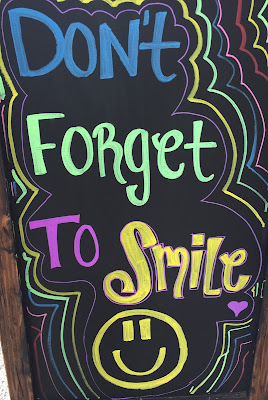 DON't
Forget
To Smile